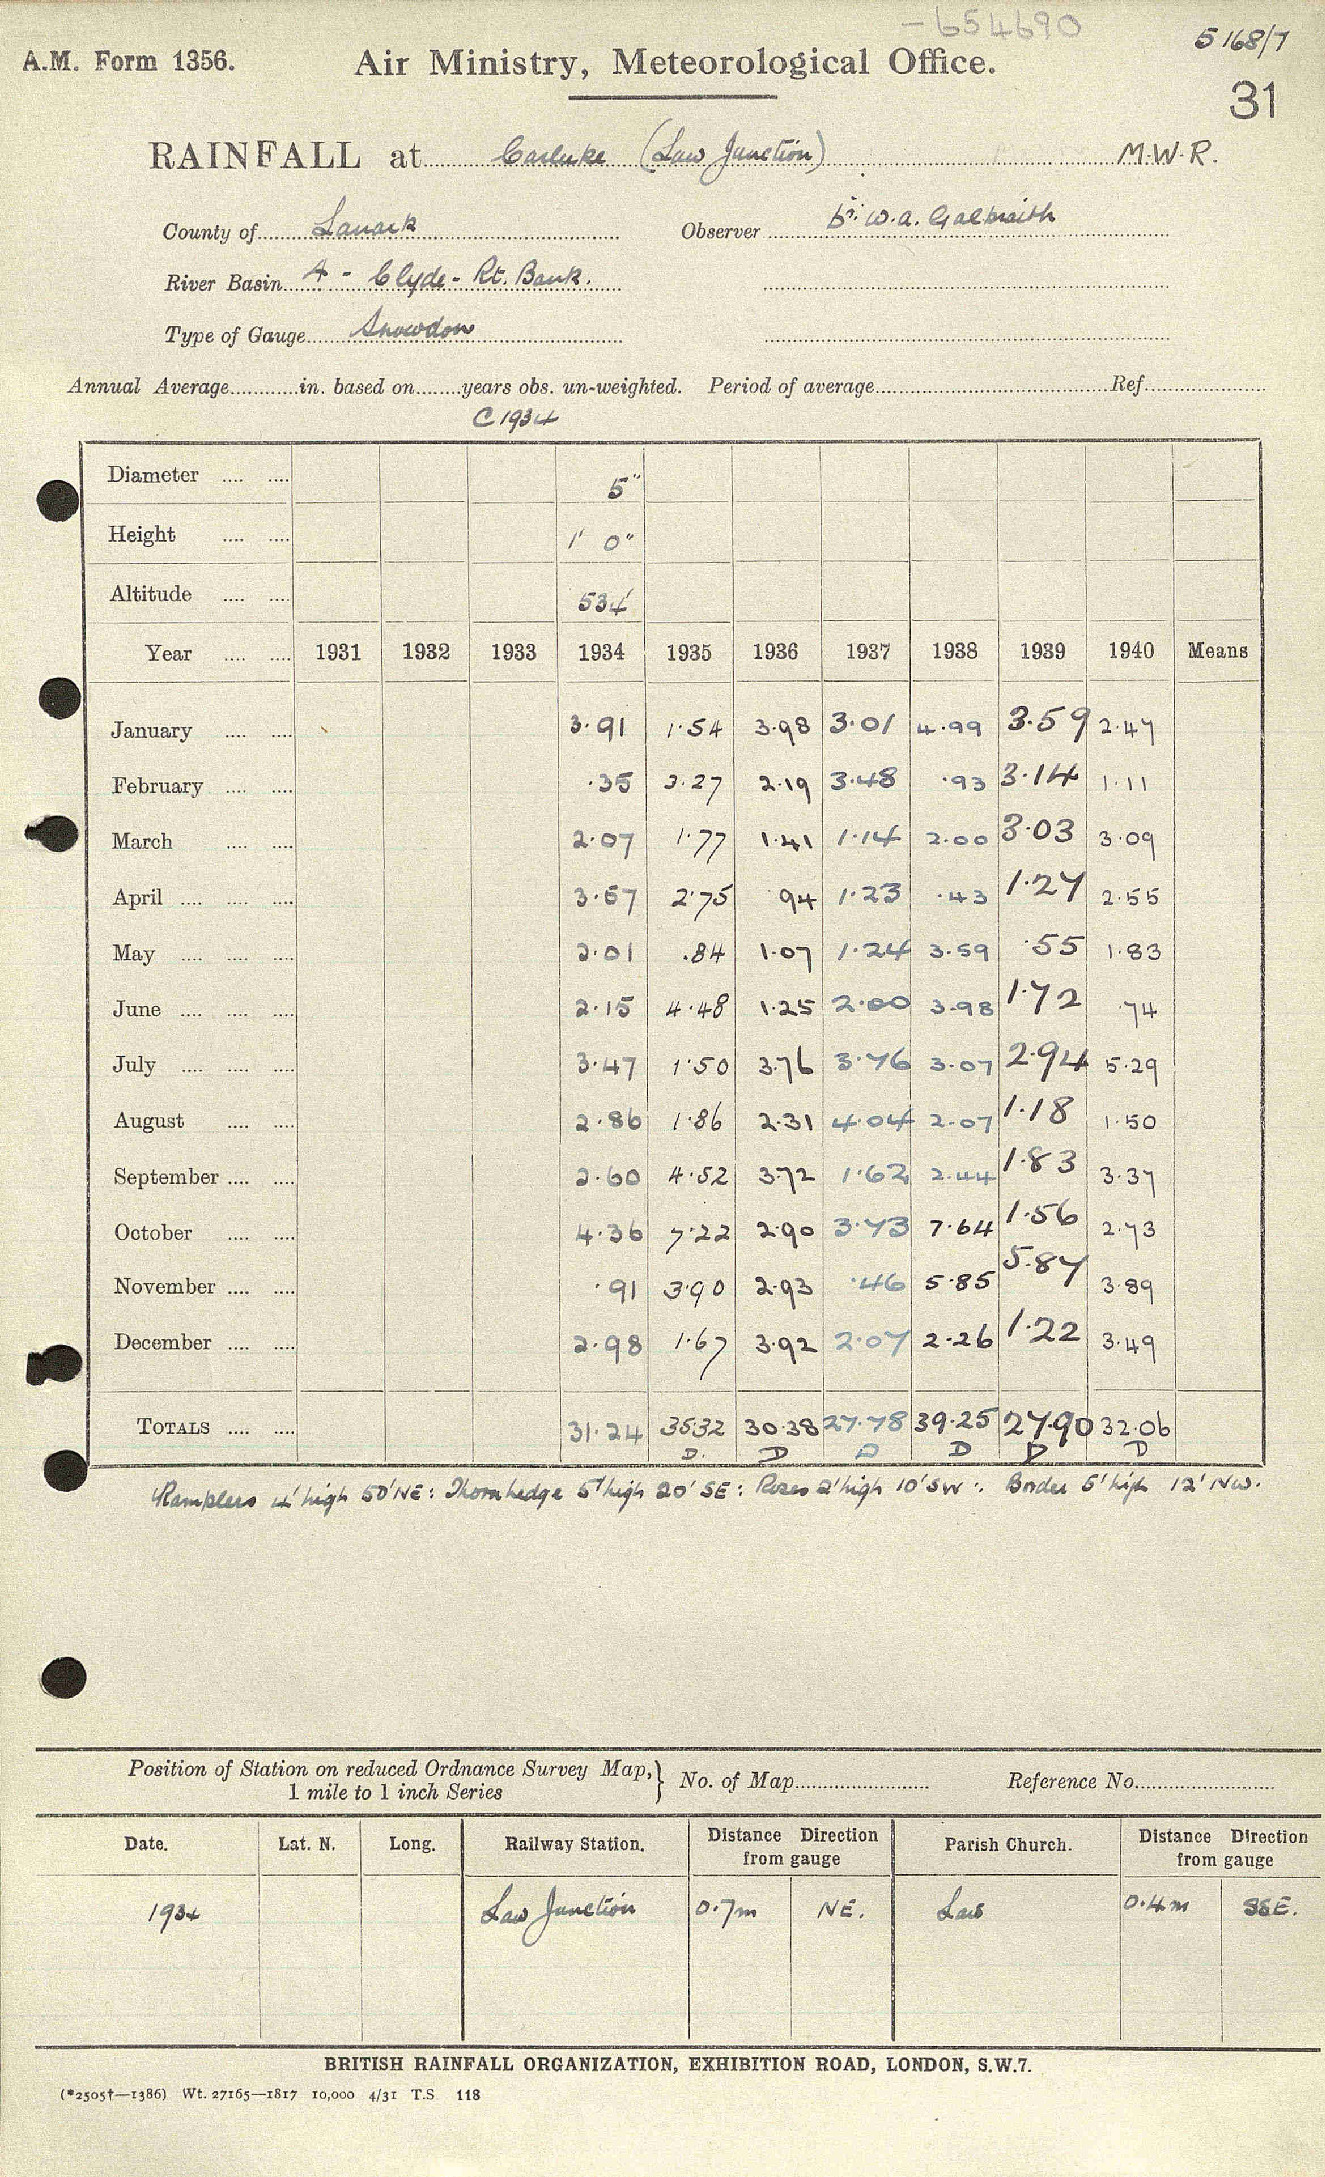 -654690
5168/7
A.M. Form 1356. Air Ministry, Meteorological Office.
31
RAINFALL at Carluke (Law Junction) M.W.R.
County of Lanark Observer Dr. W.A. Galbraith
River Basin A - Clyde - Rt. Bank.
Type of Gauge Snowdon
Annual Average in. based on years obs. un-weighted. Period of average Ref
C 1934
Diameter .... .... 5"
Height .... .... 1' 0"
Altitude .... .... 534'
Year .... .... 1931 1932 1933 1934 1935 1936 1937 1938 1939 1940 Means
January .... .... 3.91 1.54 3.98 3.01 4.99 3.59 2.47
February .... .... .35 3.27 2.19 3.48 .93 3.14 1.11
March .... .... 2.07 1.77 1.41 1.14 2.00 3.03 3.09
April .... .... .... 3.57 2.75 .94 1.23 .43 1.27 2.55
May .... .... .... 2.01 .84 1.07 1.24 3.59 .55 1.83
June .... .... .... 2.15 4.48 1.25 2.00 3.98 1.72 .74
July .... .... .... 3.47 1.50 3.76 3.76 3.07 2.94 5.29
August .... .... 2.86 1.86 2.31 4.04 2.07 1.18 1.50
September .... .... 2.60 4.52 3.72 1.62 2.44 1.83 3.37
October .... .... 4.36 7.22 2.90 3.73 7.64 1.56 2.73
November .... .... .91 3.90 2.93 .46 5.85 5.87 3.89
December .... .... 2.98 1.67 3.92 2.07 2.26 1.22 3.49
TOTALS .... .... 31.24 35.32 30.38 27.78 39.25 27.90 32.06
D. D D D D D
Ramplers 4' high 50' NE : Thornhedge 5' high 20' SE : Roses 2' high 10' SW : Border 5' high 12' NW.
Position of Station on reduced Ordnance Survey Map, 1 mile to 1 inch Series } No. of Map Reference No.
Date. Lat. N. Long. Railway Station. Distance Direction from gauge Parish Church. Distance Direction from gauge
1934 Law Junction 0.7m NE. Law 0.4m SSE.
BRITISH RAINFALL ORGANIZATION, EXHIBITION ROAD, LONDON, S.W.7.
(*2505†—1386) Wt. 27165—1817 10,000 4/31 T.S 118